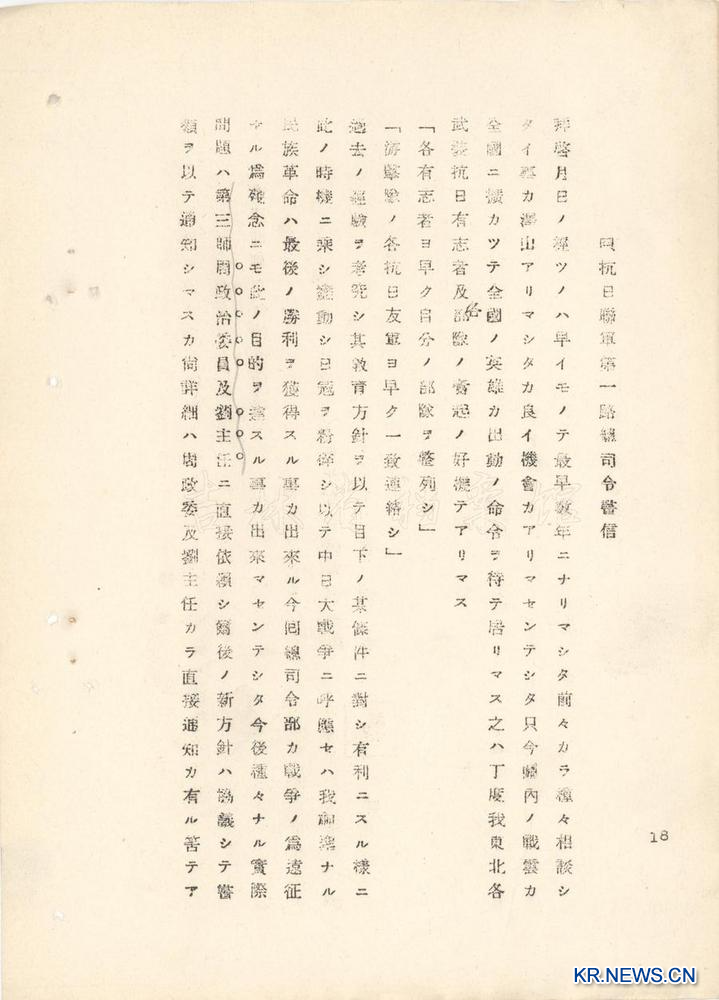 四抗日聯軍第一路總司令書信
拝啓月日ノ經ツノハ早イモノテ最早数年ニナリマシタ前々カラ種々相談シ
タイ事カ澤山アリマシタカ良イ機會カアリマセンテシタ只今 内ノ戰雲カ
全國ニ擴カツテ全國ノ英雄カ出動ノ命令ヲ待テ居リマス之ハ丁度我東北各
武裝抗日有志者及 隊ノ奮起ノ好機テアリマス
「各有志者ヨ早ク自分ノ部隊ヲ整列シ」
「 隊ノ各抗日友軍ヨ早ク一致連絡シ」
過去ノ經驗ヲ考究シ其教育方針ヲ以テ目下ノ某條件ニ對シ有利ニスル様ニ
此ノ時機ニ乘シ 動シ日冦ヲ粉碎シ以テ中日大戰爭ニ呼應セハ我 ナル
民族革命ハ最後ノ勝利ヲ獲得スル事カ出來ル今囘總司令部カ戰爭ノ爲遠征
ナル爲殘念ニモ此ノ目的ヲ達スル事カ出來マセンテシタ今後種々ナル實際
問題ハ第三師周政治委員及劉主任ニ直接依賴シ爾後ノ新方針ハ協議シテ書
類ヲ以テ通知シマスカ尙詳細ハ周政委及劉主任カラ直接通知カ有ル筈テア
18
KR.NEWS.CN